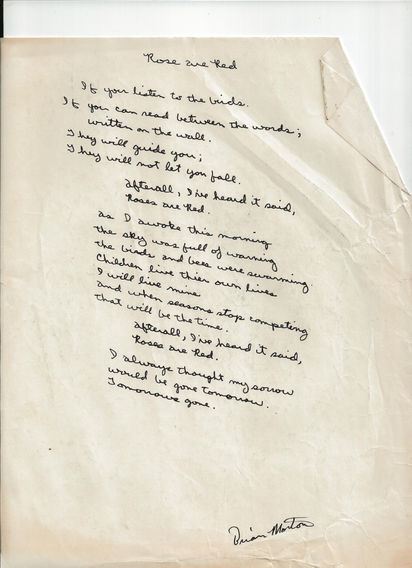 Rose are Red
If you listen to the birds.
If you can read between the words;
written on the wall.
They will guide you;
They will not let you fall.
afterall, I've heard it said,
Roses are Red.
as I awoke this morning
the sky was full of warning
the birds and bees were swarming.
Children live thier own lives
I will live mine
and when seasons stop competing
that will be the time.
afterall, I've heard it said,
Roses are Red.
I always thought my sorrow
would be gone tomorrow.
Tomorrows gone.
Brian Morton